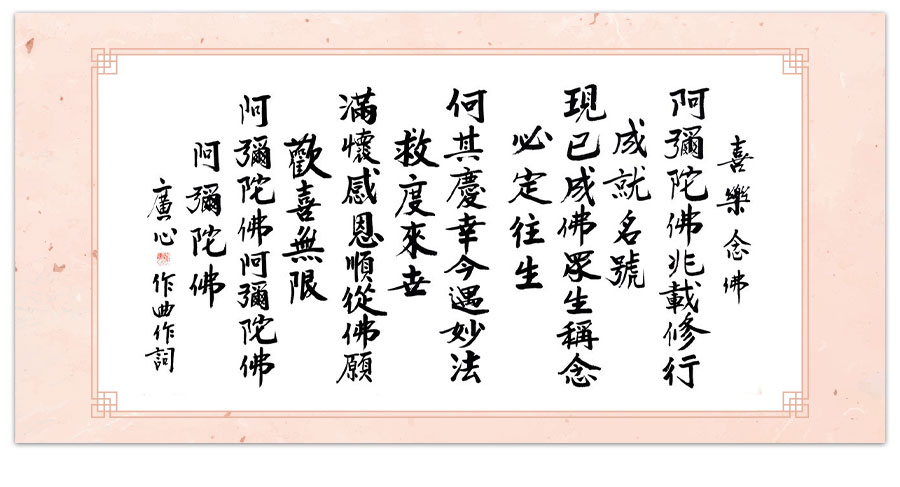 喜樂念佛
阿彌陀佛兆載修行
成就名號
現已成佛眾生稱念
必定往生
何其慶幸今遇妙法
救度來世
滿懷感恩順從佛願
歡喜無限
阿彌陀佛阿彌陀佛
阿彌陀佛
廣心 作曲作詞